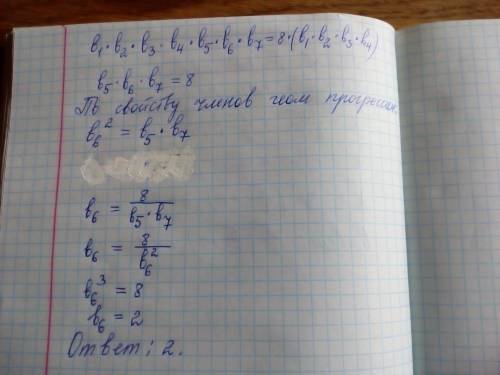 b₁·b₂·b₃·b₄·b₅·b₆·b₇=8·(b₁·b₂·b₃·b₄)
b₅·b₆·b₇=8
По свойству членов геом прогрессии,
b₆² = b₅·b₇
b₆ = 8/(b₅·b₇)
b₆ = 8/b₆²
b₆³ = 8
b₆ = 2
Ответ: 2.